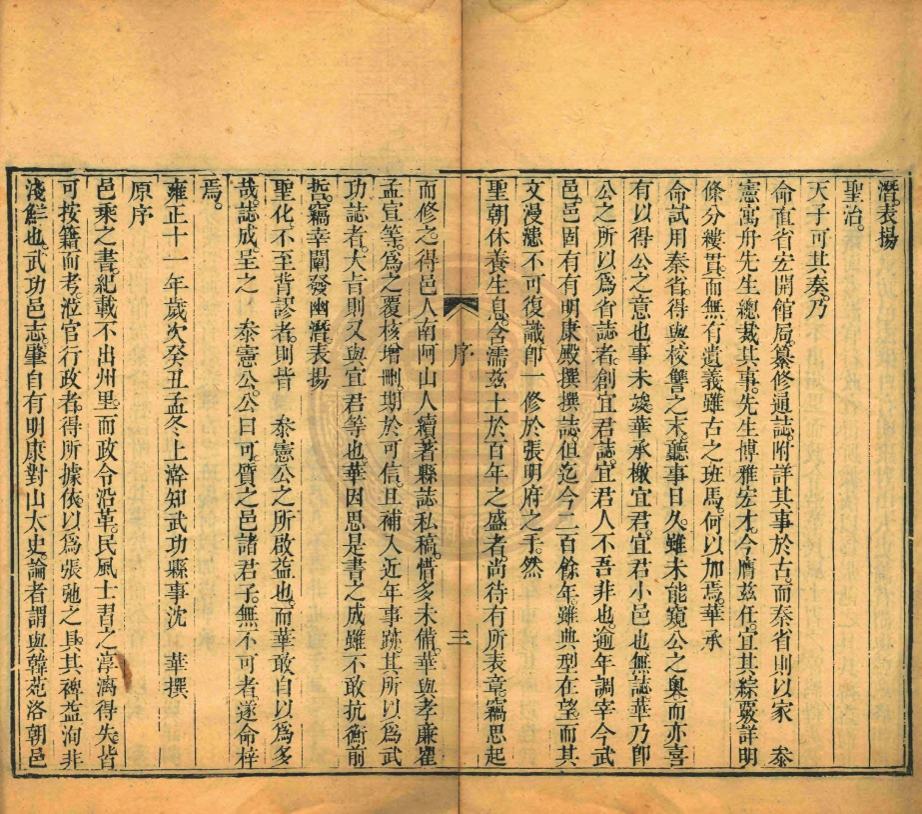 潛表揚
聖治。
天子可其奏乃
命直省宏開館局。纂修通誌。附詳其事於古。而秦省則以家　泰
憲寓舟先生總裁其事。先生博雅宏才。今膺茲任。宜其綜覈詳明
條分縷貫。而無有遺義雖古之班馬。何以加焉。華承
命試用秦省得與校讐之末。聽事日久。雖未能窺公之奧而亦喜
有以得公之意也事未竣華承檄宜君。宜君小邑也無誌華乃卽
公之所以爲省誌者。創宜君誌宜君人不吾非也。逾年調宰今武
邑。邑固有有明康殿撰誌。但迄今二百餘年。雖典型在望。而其
文漫漶不可復識卽一修於張明府之手。然
聖朝休養生息。含濡茲土於百年之盛者。尚待有所表章。竊思起
序
三
而修之。得邑人南阿山人續著縣誌私稿。惜多未備。華與孝廉崔
孟宣等。爲之覆核增刪。期於可信。且補入近年事跡。其所以爲武
功誌者。大旨則又與宜君等也華因思是書之成雖不敢抗衡前
哲。竊幸闡發幽潛。表揚
聖化。不至背謬者。則皆　泰憲公之所啟益也。而華敢自以爲多
哉。誌成呈之　泰憲公。公曰可。質之邑諸君子。無不可者。遂命梓
焉。
雍正十一年歲次癸丑孟冬上澣知武功縣事沈　華撰
原序
邑乘之書。紀載不出州里。而政令沿革。民風士習之淳漓得失。皆
可按籍而考。涖官行政者。得所據依。以爲張弛之具。其裨益洵非
淺鮮也。武功邑志。肇自有明康對山太史。論者謂與韓苑洛朝邑